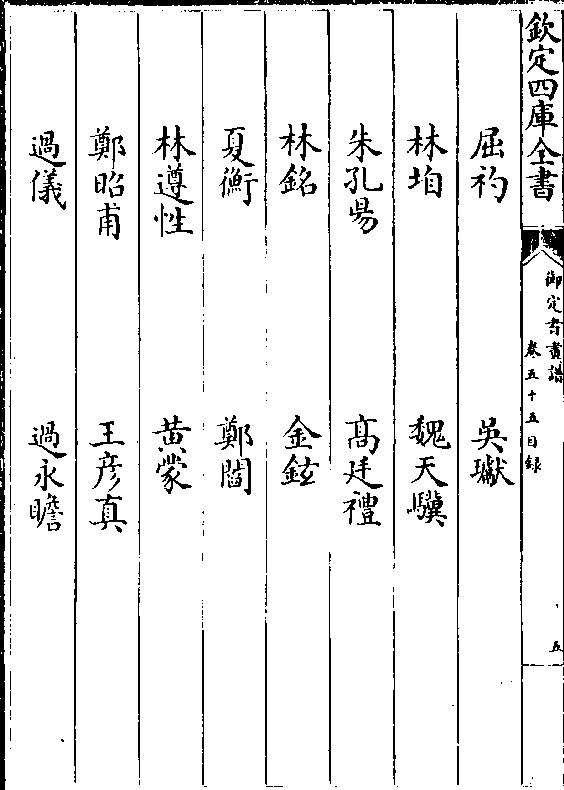 欽定四庫全書
御定書畫譜
卷五十五目録
五
屈礿　吳瓛
林垍　魏天驥
朱孔昜　高廷禮
林銘　金鉉
夏衡　鄭閻
林遵性　黃蒙
鄭昭甫　王彥真
過儀　過永瞻